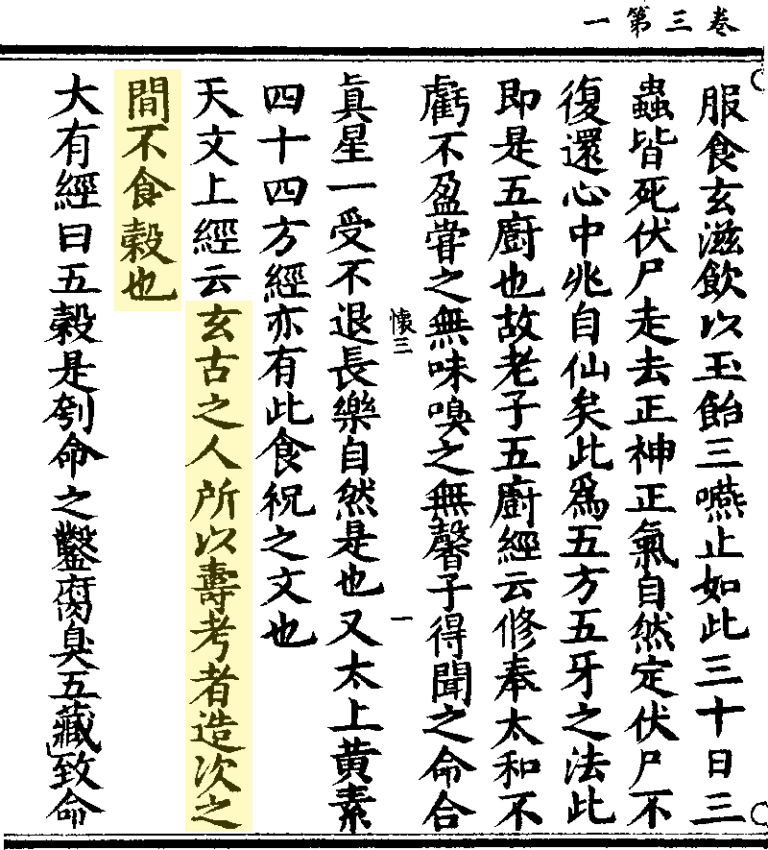 卷三第一
服食玄滋飲以玉飴三嚥止如此三十日三
蟲皆死伏尸走去正神正氣自然定伏尸不
復還心中兆自仙矣此爲五方五牙之法此
即是五廚也故老子五廚經云修奉太和不
虧不盈甞之無味嗅之無馨子得聞之命合
懷三 一
眞星一受不退長樂自然是也又太上黃素
四十四方經亦有此食祝之文也
天文上經云玄古之人所以壽考者造次之
間不食穀也
大有經曰五穀是刳命之鑿腐臭五藏致命